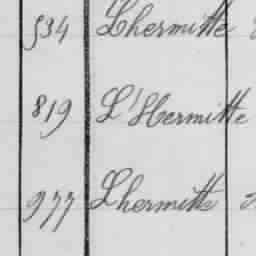 534 Lhermitte
819 L'Hermitte
977 Lhermitte